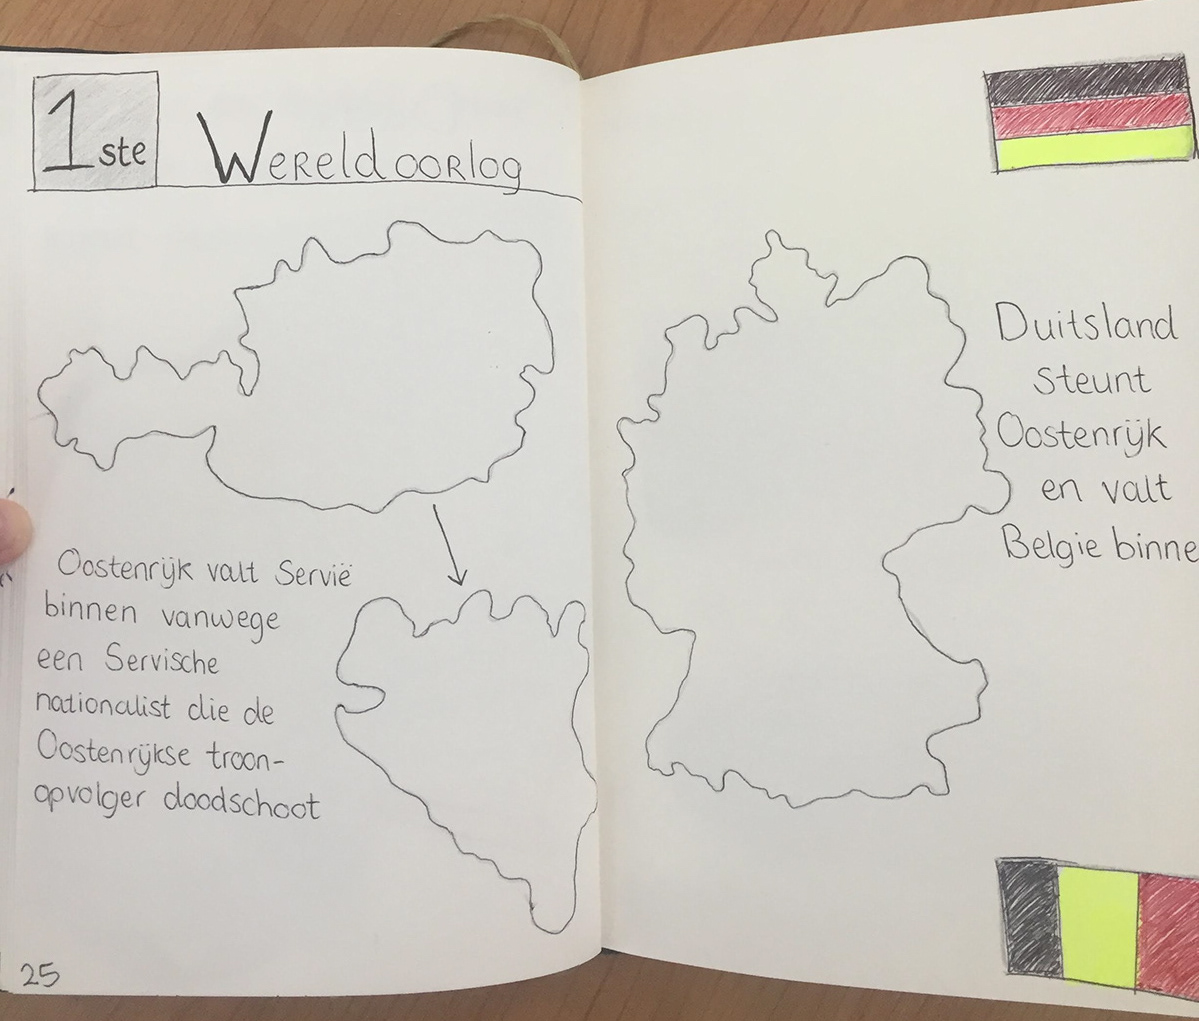 1ste Wereldoorlog
Oostenrijk valt Servië
binnen vanwege
een Servische
nationalist die de
Oostenrijkse troon-
opvolger doodschoot
25
Duitsland
steunt
Oostenrijk
en valt
Belgie binne